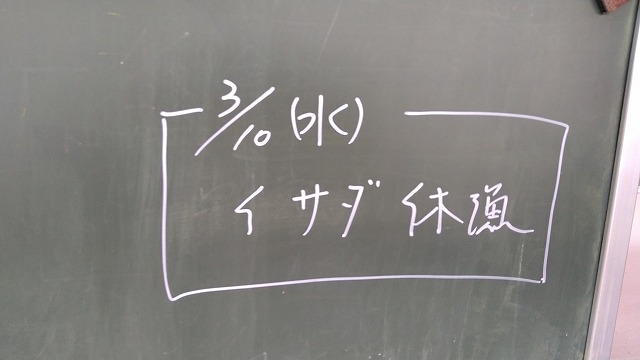 3/10(水)
イサダ休漁